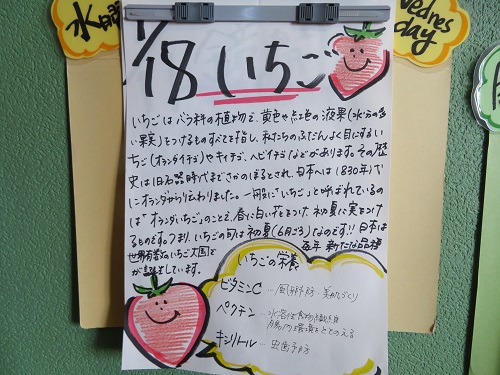 水曜
Wednesday
1/18 いちご
いちごはバラ科の植物で、黄色や赤色の液果(水分の多
い果実)をつけるものすべてを指し、私たちのふだんよく目にするい
ちご(オランダイチゴ)やキイチゴ、ヘビイチゴなどがあります。その歴
史は旧石器時代までさかのぼるとされ、日本へは1830年代
にオランダから伝わりました。一般に「いちご」と呼ばれているの
は「オランダいちご」のことで、春に白い花をつけ、初夏に実をつけ
るものです。つまり、いちごの旬は初夏(6月ごろ)なのです!!日本は
世界有数のいちご大国で 毎年 新たな品種
が誕生しています。
いちごの栄養
ビタミンC … 風邪予防・美肌づくり
ペクチン … 水溶性食物繊維
腸内環境をととのえる
キシリトール … 虫歯予防